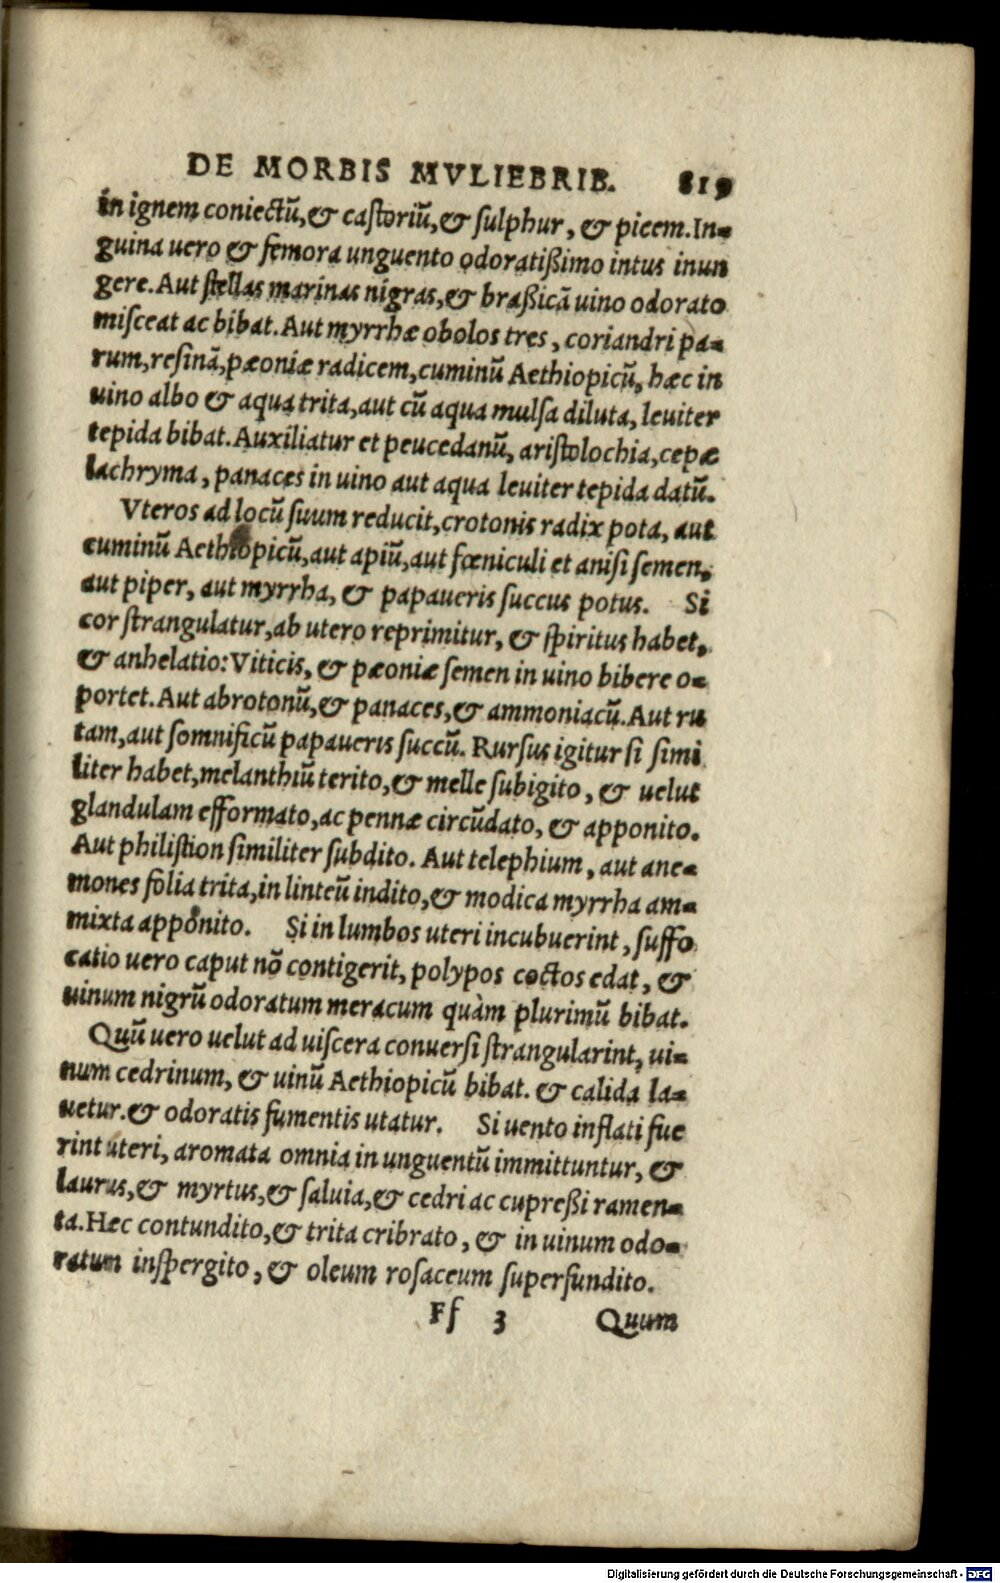 DE MORBIS MVLIEBRIB. 819
in ignem coniectũ, & castoriũ, & sulphur, & picem. In-
guina uero & femora unguento odoratißimo intus inun
gere. Aut stellas marinas nigras, & braßicã uino odorato
misceat ac bibat. Aut myrrhæ obolos tres, coriandri pa-
rum, resinã, pæoniæ radicem, cuminũ Aethiopicũ, hæc in
uino albo & aqua trita, aut cũ aqua mulsa diluta, leuiter
tepida bibat. Auxiliatur et peucedanũ, aristolochia, cepæ
lachryma, panaces in uino aut aqua leuiter tepida datũ.
Vteros ad locũ suum reducit, crotonis radix pota, aut
cuminũ Aethiopicũ, aut apiũ, aut fœniculi et anisi semen,
aut piper, aut myrrha, & papaueris succus potus. Si
cor strangulatur, ab utero reprimitur, & spiritus habet,
& anhelatio: Viticis, & pæoniæ semen in uino bibere o-
portet. Aut abrotonũ, & panaces, & ammoniacũ. Aut ru
tam, aut somnificũ papaueris succũ. Rursus igitur si simi
liter habet, melanthiũ terito, & melle subigito, & uelut
glandulam efformato, ac pennæ circũdato, & apponito.
Aut philistion similiter subdito. Aut telephium, aut ane-
mones folia trita, in linteũ indito, & modica myrrha am-
mixta apponito. Si in lumbos uteri incubuerint, suffo
catio uero caput nõ contigerit, polypos coctos edat, &
uinum nigrũ odoratum meracum quàm plurimũ bibat.
Quũ uero uelut ad uiscera conuersi strangularint, ui-
num cedrinum, & uinũ Aethiopicũ bibat. & calida la-
uetur. & odoratis fumentis utatur. Si uento inflati fue
rint uteri, aromata omnia in unguentũ immittuntur, &
laurus, & myrtus, & saluia, & cedri ac cupreßi ramen-
ta. Hæc contundito, & trita cribrato, & in uinum odo-
ratum inspergito, & oleum rosaceum superfundito.
Ff 3 Quum
Digitalisierung gefördert durch die Deutsche Forschungsgemeinschaft - DFG